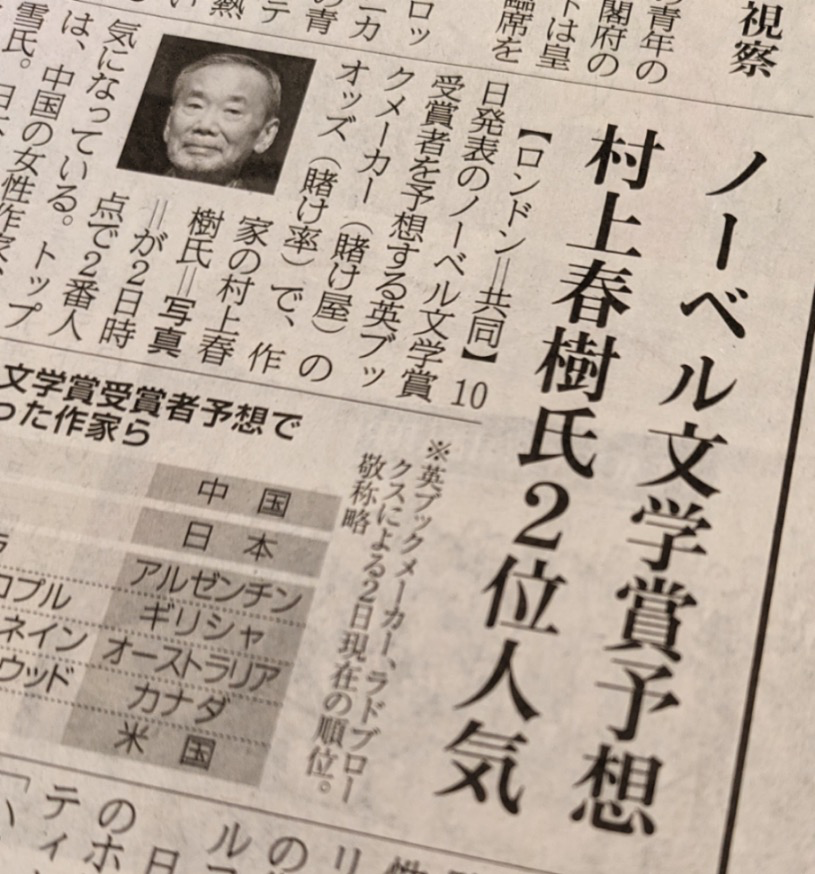 視察
の青年の
閣府の
下は皇
臨席を
ロッ
ーカ
の青
テ
熱
ノーベル文学賞予想
村上春樹氏2位人気
【ロンドン=共同】10
日発表のノーベル文学賞
受賞者を予想する英ブッ
クメーカー(賭け屋)の
オッズ(賭け率)で、作
家の村上春
樹氏=写真
=が2日時
点で2番人
気になっている。トップ
は、中国の女性作家、
雪氏。
文学賞受賞者予想で
った作家ら
中国
日本
アルゼンチン
ギリシャ
オーストラリア
カナダ
米国
ラ
ロプル
ネイン
ウッド
※英ブックメーカー、ラドブロー
クスによる2日現在の順位。
敬称略
リ
の
ル
日
の
ホ
ティ